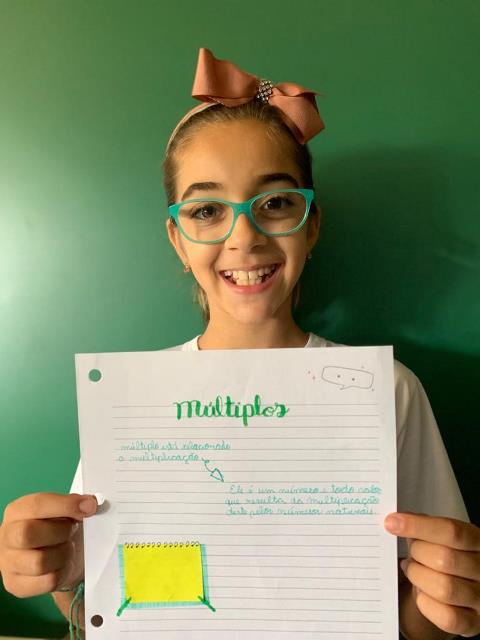 Múltiplos
múltiplo está relacionado
a multiplicação
Ele é um número e todo valor
que resulta da multiplicação
deste pelos números naturais.